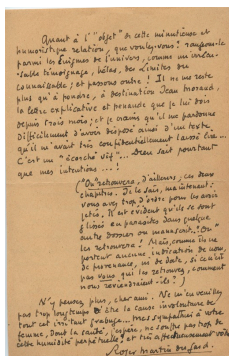 Quant à l'"objet" de cette minutieuse et
humoristique relation, que voulez-vous ! rangeons-le
parmi les énigmes de l'univers, comme un irrécu-
sable témoignage, hélas, des limites du
connaissable ; et passons outre ! Il ne me reste
plus qu'à pondre, à destination Jean Morand,
la lettre explicative et penaude que je lui dois
depuis trois mois ; et je crains qu'il me pardonne
difficilement d'avoir disposé ainsi d'un texte
qu'il m'avait très confidentiellement laissé lire...
C'est un "écorché vif"... Dieu sait pourtant
que mes intentions... !
("On" retrouvera, d'ailleurs, ces deux
chapitres. Je le sais, maintenant :
vous avez trop d'ordre pour les avoir
jetés. Il est évident qu'ils se sont
glissés en parasites dans quelque
autre dossier ou manuscrit. "On"
les retrouvera ! Mais, comme ils ne
portent aucune indication de nom,
de provenance, ni de date, si ce n'est
pas vous qui les retrouvez, comment
nous reviendraient-ils ?)
N'y pensez plus, cher ami. Ne m'en veuillez
pas trop longtemps d'être la cause involontaire de
tout cet irritant grabuge... très sympathisé à votre
écume, dont la santé, j'espère, ne souffre pas trop de
cette humidité perpétuelle, et très affectueusement vôtre
Roger Martin du Gard.